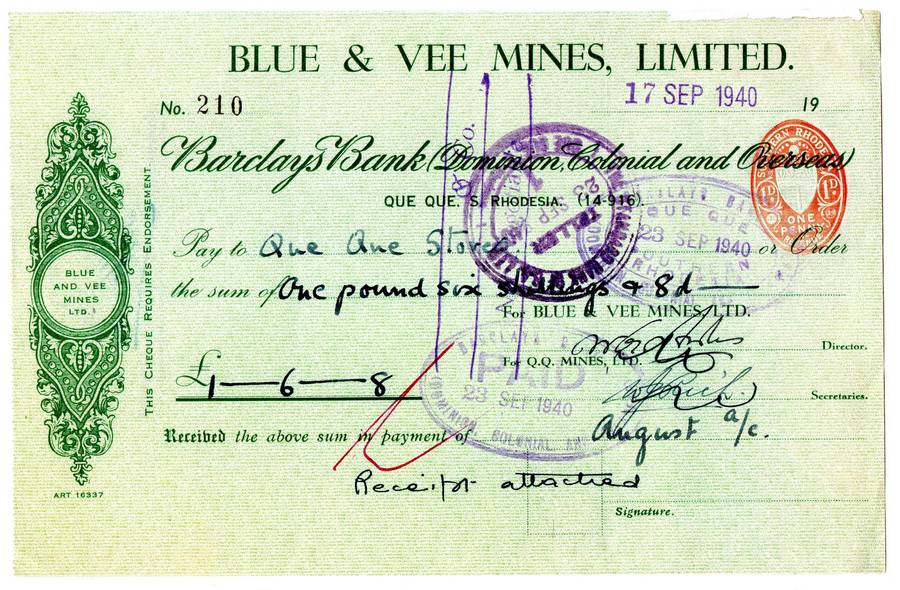 BLUE & VEE MINES, LIMITED.
No. 210
17 SEP 1940
19
Barclays Bank (Dominion, Colonial and Overseas)
QUE QUE, S. RHODESIA. (14-916).
Pay to Que Que Stores or Order
the sum of One pound six shillings & 8d
For BLUE & VEE MINES, LTD.
Director.
For Q.Q. MINES, LTD.
£1-6-8
Secretaries.
Received the above sum in payment of August a/c.
Receipt attached
Signature.
BLUE
AND VEE
MINES
LTD.
ART 16337
THIS CHEQUE REQUIRES ENDORSEMENT
& Co.
SOUTHERN RHODESIA
1D. 1D.
ONE
PENNY
TELLER
23 SEP
BARCLAYS BANK
QUE QUE
23 SEP 1940
SOUTHERN
RHODESIA
BARCLAYS BANK
PAID
23 SEP 1940
DOMINION COLONIAL AND